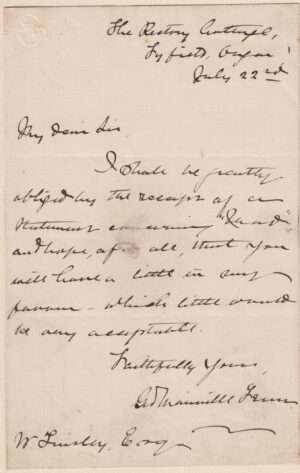 The Rectory Cottage,
Fyfield, Ongar
July 22nd
My dear Sir,
I shall be greatly
obliged by the receipt of a
statement concerning
and hope, after all, that you
will have a little in my
favour - which little would
be very acceptable.
Faithfully Yours,
Geo Manville Fenn
W. Tinsley, Esq